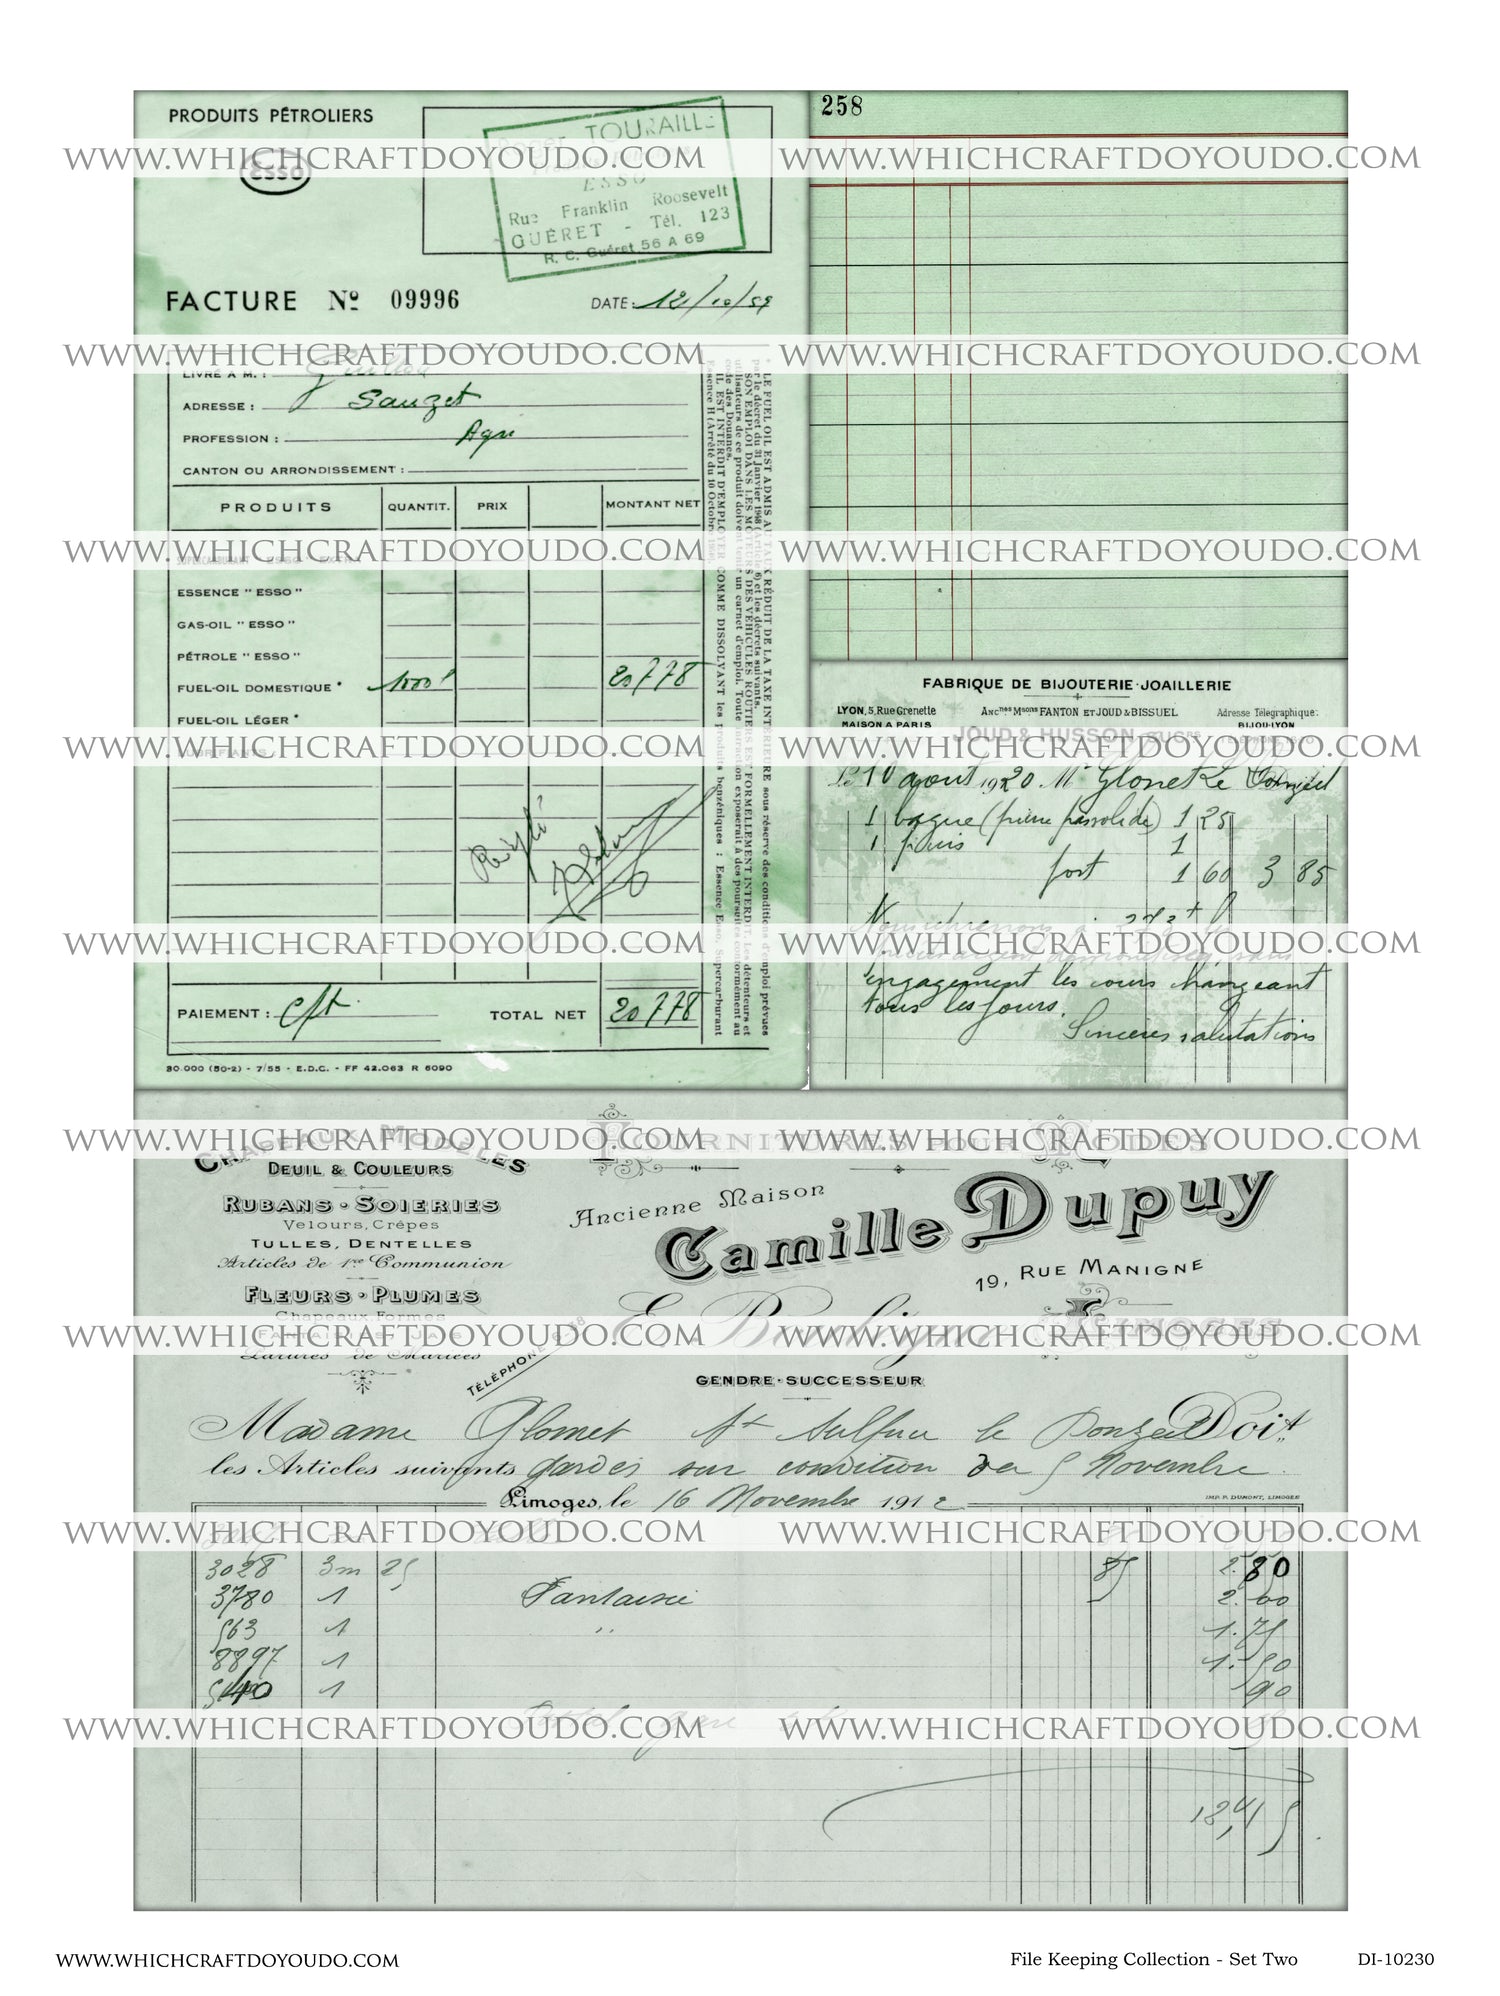 PRODUITS PÉTROLIERS
Esso
Roger TOURAILLE
ESSO
Rue Franklin Roosevelt
GUÉRET - Tél. 123
R. C. Guéret 56 A 69
FACTURE Nº 09996
DATE: 12/10/59
LIVRÉ A M. :
ADRESSE : Sauzet
PROFESSION : Agri
CANTON OU ARRONDISSEMENT :
PRODUITS QUANTIT. PRIX MONTANT NET
SUPERCARBURANT ESSO EXTRA
ESSENCE " ESSO "
GAS-OIL " ESSO "
PÉTROLE " ESSO "
FUEL-OIL DOMESTIQUE * 1000 l 20778
FUEL-OIL LÉGER *
LUBRIFIANTS :
PAIEMENT : cpt TOTAL NET 20778
30.000 (50-2) - 7/55 - E.D.C. - FF 42.063 R 6090
* LE FUEL OIL EST ADMIS AU TAUX RÉDUIT DE LA TAXE INTÉRIEURE sous réserve des conditions d'emploi prévues
par le décret du 31 Janvier 1908 (Article 6) et les décrets suivants.
SON EMPLOI DANS LES MOTEURS DES VÉHICULES ROUTIERS EST FORMELLEMENT INTERDIT. Les détenteurs et
utilisateurs de ce produit doivent tenir un carnet d'emploi. Toute infraction exposerait à des poursuites conformément au
code des Douanes.
IL EST INTERDIT D'EMPLOYER COMME DISSOLVANT les produits benzéniques : Essence Esso, Supercarburant
Essence H (Arrêté du 10 Octobre
258
FABRIQUE DE BIJOUTERIE-JOAILLERIE
LYON, 5, Rue Grenette
MAISON A PARIS
Ancnes Msons FANTON ET JOUD & BISSUEL
Adresse Télégraphique:
BIJOU-LYON
JOUD & HUSSON SUCRS
Le 10 aout 1920 Mr Glomet Le
1 bague ( ) 1 25
1 1
port 1 60 3 85
engagement les cours changeant
tous les jours.
Sinceres salutations
CHAPEAUX MODÈLES
DEUIL & COULEURS
RUBANS - SOIERIES
Velours, Crêpes
TULLES, DENTELLES
Articles de 1re Communion
FLEURS - PLUMES
Chapeaux Formes
FANTAISIES JAIS
Parures de Mariées
TÉLÉPHONE
FOURNITURES POUR MODES
Ancienne Maison
Camille Dupuy
19, RUE MANIGNE
LIMOGES
GENDRE-SUCCESSEUR
Madame Glomet St Sulpice le Donzeil Doit
les Articles suivants gardés sur condition du 5 Novembre
Limoges, le 16 Novembre 1912
IMP. P. DUMONT, LIMOGES
3028 3m 25 85 2.80
3780 1 Fantaisie 2.00
563 1 " 1.75
8897 1 1.50
540 1 90
12,45
WWW.WHICHCRAFTDOYOUDO.COM WWW.WHICHCRAFTDOYOUDO.COM
WWW.WHICHCRAFTDOYOUDO.COM WWW.WHICHCRAFTDOYOUDO.COM
WWW.WHICHCRAFTDOYOUDO.COM WWW.WHICHCRAFTDOYOUDO.COM
WWW.WHICHCRAFTDOYOUDO.COM WWW.WHICHCRAFTDOYOUDO.COM
WWW.WHICHCRAFTDOYOUDO.COM WWW.WHICHCRAFTDOYOUDO.COM
WWW.WHICHCRAFTDOYOUDO.COM WWW.WHICHCRAFTDOYOUDO.COM
WWW.WHICHCRAFTDOYOUDO.COM WWW.WHICHCRAFTDOYOUDO.COM
WWW.WHICHCRAFTDOYOUDO.COM WWW.WHICHCRAFTDOYOUDO.COM
WWW.WHICHCRAFTDOYOUDO.COM WWW.WHICHCRAFTDOYOUDO.COM
WWW.WHICHCRAFTDOYOUDO.COM File Keeping Collection - Set Two DI-10230